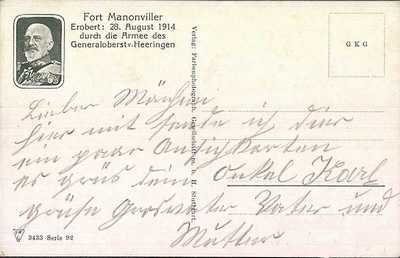 Fort Manonviller
Erobert: 28. August 1914
durch die Armee des
Generaloberst v. Heeringen
GKG
Verlag: Farbenphotograph. Gesellschaft m. b. H. Stuttgart.
Lieber
hier mit sende ich dir
ein paar Ansichkarten
es grüs dein Onkel Karl
grüse Grosvater Vater und
Mutter
3433 Serie 92